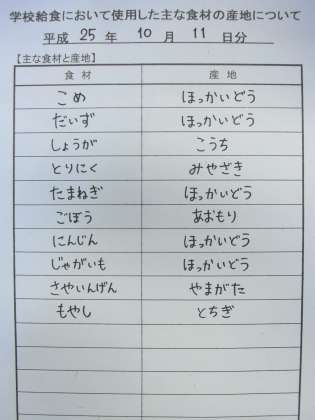 学校給食において使用した主な食材の産地について
平成 25 年 10 月 11 日分
【主な食材と産地】
食材 産地
こめ ほっかいどう
だいず ほっかいどう
しょうが こうち
とりにく みやざき
たまねぎ ほっかいどう
ごぼう あおもり
にんじん ほっかいどう
じゃがいも ほっかいどう
さやいんげん やまがた
もやし とちぎ